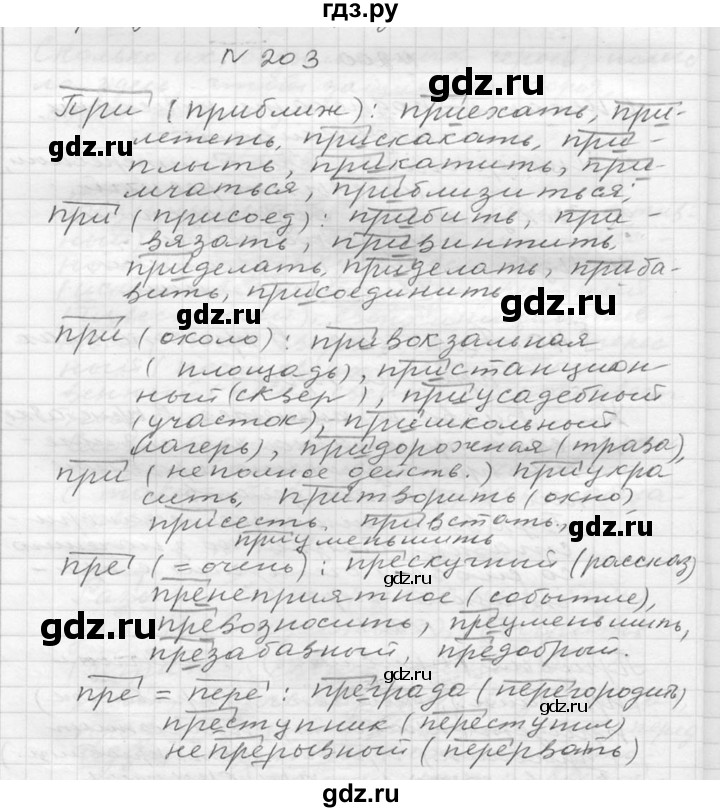 гдз.ру
N 203
При (приближ): приехать, при-
лететь, прискакать, при-
плыть, прикатить, при-
мчаться, приблизиться;
при (присоед): прибить, при-
вязать, привинтить
приделать, приделать, приба-
вить, присоединить
gdz.ru
при (около): привокзальная
(площадь), пристанцион-
ный (сквер), приусадебный
(участок), пришкольный
лагерь), придорожная (трава),
при (неполное действ.) приукра
сить, притворить (окно)
присесть, привстать,
gdz.ru
приуменьшить
пре (=очень): прескучный (рассказ)
gdz.ru
gdz.ru
пренеприятное (событие),
gdz.ru
превозносить, преуменьшить,
gdz.ru
презабавный, предобрый.
gdz.ru
пре = пере: преграда (перегородить)
gdz.ru
преступник (переступил)
непрерывный (перервать)
gdz.ru